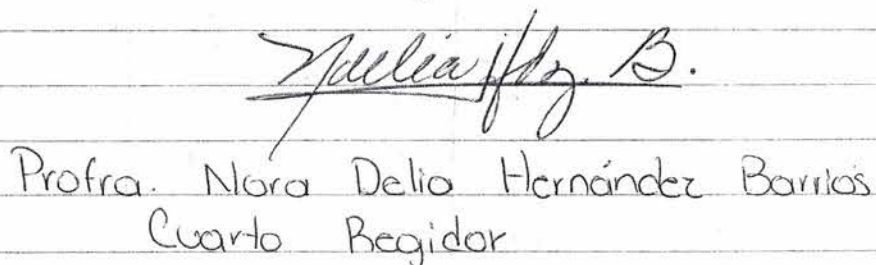 NDelia Hdz. B.
Profra. Nora Delia Hernández Barrios
Cuarto Regidor